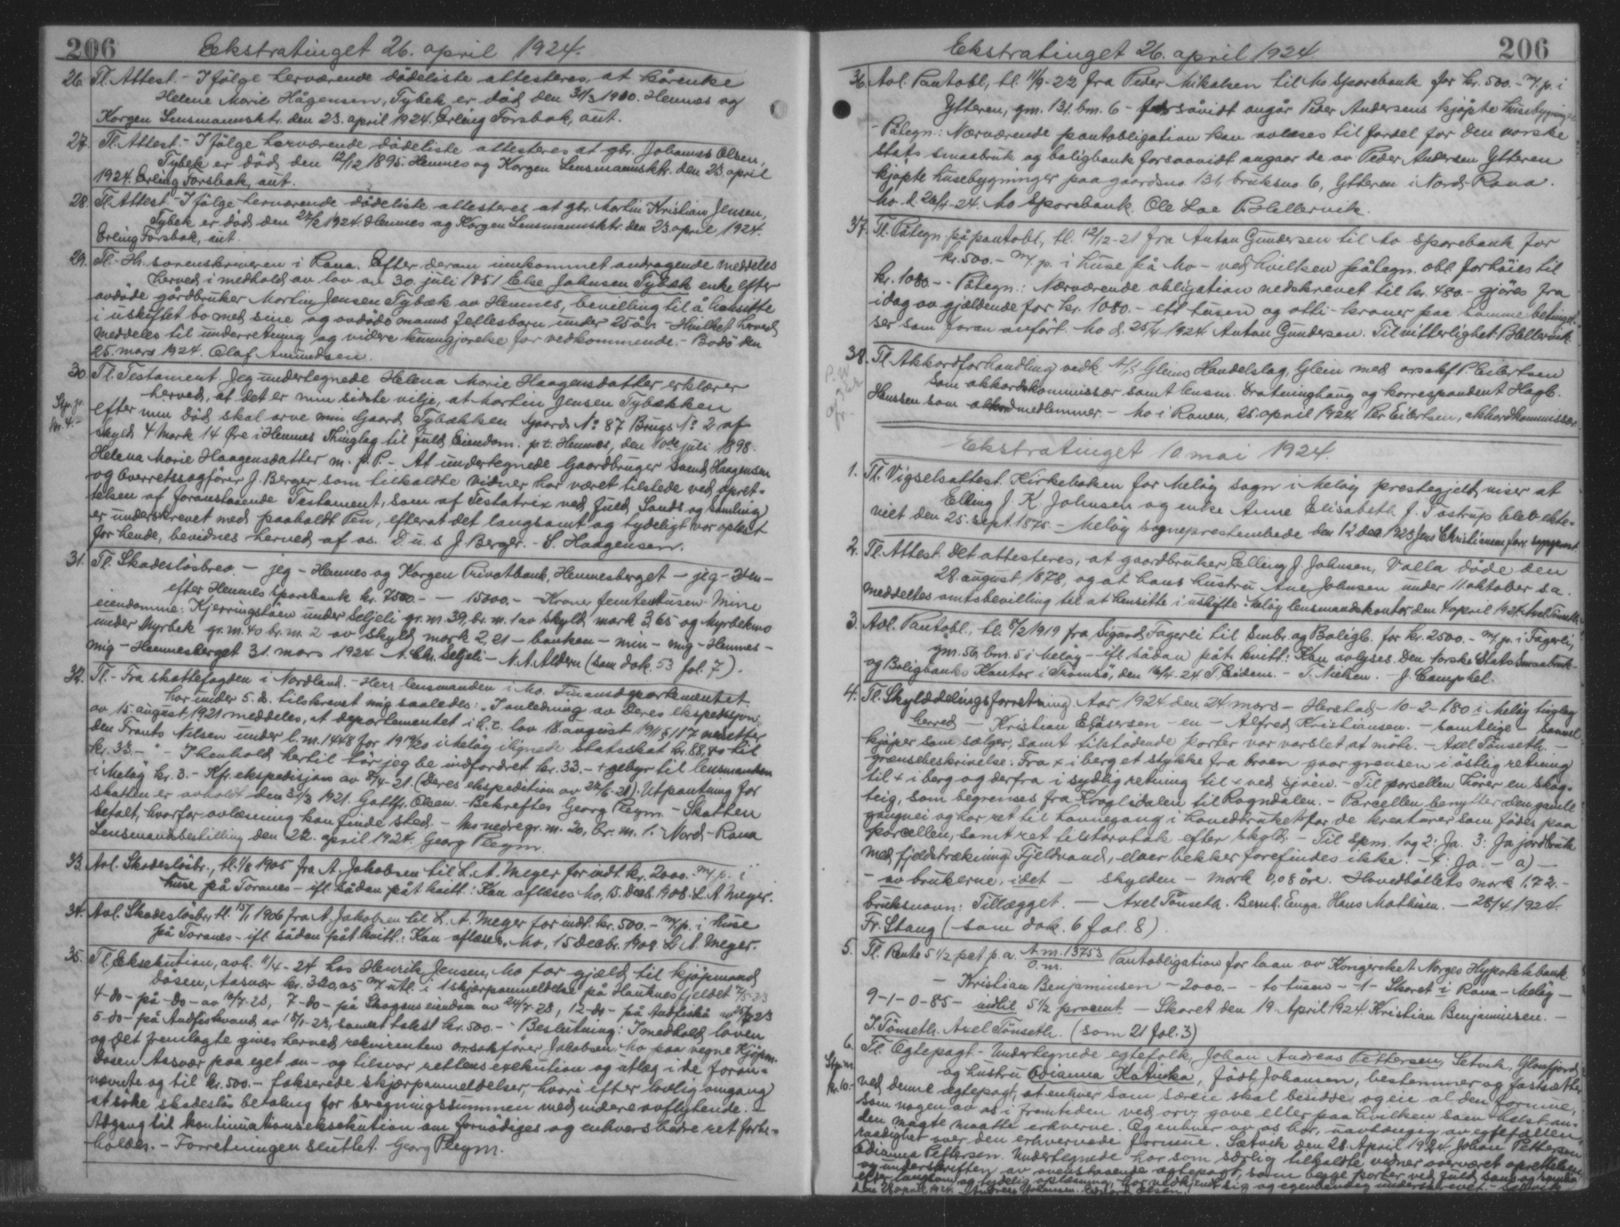 206
Ekstratinget 26. april 1924.
26. Tl. Attest. - Ifølge herværende dødeliste attesteres, at kårenke
Helene Marie Hågensen, Tybek er død den 31/3 1900. Hennes og
Korgen Lensmannsktr. den 23. april 1924. Erling Forsbak, aut.
27. Tl. Attest. - Ifølge herværende dødeliste attesteres at gbr. Johannes Olsen,
Tybek er død den 12/12 1895. Hennes og Korgen Lensmannsktr. den 23. april
1924. Erling Forsbak, aut.
28. Tl. Attest - Ifølge herværende dødeliste attesteres at gbr. Martin Kristian Jensen,
Tybek er død den 1924. Hennes og Korgen Lensmannsktr. den 23 april 1924.
Erling Forsbak, aut.
29. Tl. - Hr. sorenskriveren i Rana. Efter derom innkommet andragende meddeles
herved i medhold av lov av 30. juli 1851 Else Johnsen Tybæk enke efter
avdøde gårdbruker Martin Jensen Tybæk av Hennes, bevilling til å hensitte
i uskiftet bo med sine og avdøde manns fellesbarn under 25 år. - Hvilket herved
meddeles til underretning og videre kunngjørelse for vedkommende. - Bodø den
25. mars 1924. Olaf Amundsen.
30. Tl. Testament. Jeg undertegnede Helena Marie Haagensdatter erklærer
herved, at det er min sidste vilje, at Martin Jensen Tybækken
Stp. p.
kr. 4.-
efter min død skal arve min Gaard Tybækken Gaards No 87 Brugs No 2 af
skyld 4 Mark 14 Øre i Hennes Thinglag til fuld Eiendom. p.t. Hennes, den 10de juli 1898.
Helena Marie Haagensdatter m. p. P. - At undertegnede Gaardbruger Svend Haagensen
og Overretssagfører J. Berger som tilkaldte Vidner har været tilstede ved opret-
telsen af foranstaaende Testament, som af Testatrix ved fuld Sands og Samling
er underskrevet med paaholdt Pen, efterat det langsomt og tydeligt var oplæst
for hende, bevidnes herved af os. D.u.s. J. Berger. - S. Haagensen.
31. Tl. Skadesløsbrev - jeg - Hennes og Korgen Privatbank, Hennesberget - jeg - den -
efter Hennes Sparebank kr. 7500.- - 15000.- - Krone femtentusen - Mine
eiendomme: Kjerringslåen under Seljeli gr.nr. 39, br.nr. 1 av skyld mark 3,65 og Myrbekmo
under Myrbek gr.nr. 40 br.nr. 2 av skyld mark 2,21 - banken - min - mig - Hennes -
mig - Hennesberget 31 mars 1924 - A. Chr. Seljeli - N. A. Aldern (som dok. 53 fol. 7).
32. Tl. - Fra skattefogden i Nordland. - Herr lensmanden i Mo. Finansdepartementet
har under 5. ds. tilskrevet mig saaledes: I anledning av Deres ekspedisjon
av 15. august 1921 meddeles, at departementet i h. t. lov 18. august 1911 § 117 nedsetter
den Frants Nilsen under l.nr. 1448 for 1919/20 i Meløy ilignede statsskat kr. 88,80 til
kr. 33.- - I henhold hertil tør jeg be indfordret kr. 33.- + gebyr til lensmanden
i Meløy kr. 3.- Kfr. ekspedisjon av 8/4-21. (Deres ekspedition av 22/6-21). Utpantning for
skatten er avholdt den 31/3 1921. Gottfr. Olsen. - Bekreftes Georg Plegm. - Skatten
betalt, hvorfor avlæsning kan finde sted. - Mo nedre gr.nr. 20, br.nr. 1. Nord-Rana
Lensmandsbestilling den 22. april 1924. Georg Plegm.
33. Avl. Skadesløsbr., tl. 1/8 1905 fra A. Jakobsen til L. A. Meyer for indt kr. 2000.- m/p. i
huse på Toranes - ifl. sådan påt. kvitt: Kan aflæses Mo, 15. decb. 1908. L. A. Meyer.
34. Avl. Skadesløsbr. tl. 15/1 1906 fra A. Jakobsen til L. A. Meyer for indt. kr. 500.- m/p. i huse
på Toranes - ifl. sådan påt. kvitt.: Kan aflæses, Mo, 15 decbr. 1908 L. A. Meyer.
35. Tl. Eksekution, avh. 11/4-24 hos Henrik Jensen, Mo for gjæld til kjøpmand
Dåsen, Aasvær kr. 320,05 m/utl. i 1 skjærpanmeldelse på Hauknesfjeldet
4-do-på-do-av 7-do-på Skogens eiendom av 24/7-23, 12-do-på Andfiskå
5-do-på Andfiskvand av 15/1-23, samlet takst kr. 500.- - Beslutning: I medhold loven
og det fremlagte gives herved rekvirenten orsakfører Jakobsen Mo paa vegne kjøpm.
Dåsen Aasvær paa eget an- og tilsvar rettens exekution og utlæg i de foran-
nævnte og til kr. 500.- takserede skjærpanmeldelser, hvori efter lovlig omgang
at søke skadesløs betaling for beregningssummen med videre avflytende. -
Adgang til kontinuationseksekution om fornødiges og enhvers bedre ret forbe-
holdes. - Forretningen sluttet. Georg Plegm.
Ekstratinget 26. april 1924
206
36. Avl. Pantobl., tl. 11/9-22 fra Peder Mikalsen til Mo Sparebank for kr. 500.- m/p. i
Ytteren, gnr. 131 bnr. 6 - forsåvidt angår Peder Andersens kjøpte husebygninger
- Påtegn.: Nærværende pantobligation kan avlæses til fordel for den norske
stats smaabruk og boligbank forsaavidt angaar de av Peder Andersen Ytteren
kjøpte husebygninger paa gaardsno 131 bruksno 6, Ytteren i Nord-Rana.
Mo d. 26/4-24. Mo Sparebank. Ole Loe P. Hellervik.
37. Tl. Påtegn. på pantobl., tl. 12/12-21 fra Anton Gundersen til Mo Sparebank for
kr. 500.- m/p. i huse på Mo - ved hvilken påtegn. obl. forhøies til
kr. 1080.- - Påtegn.: Nærværende obligation nedskrevet til kr. 480.- gjøres fra
idag av gjældende for kr. 1080.- ett tusen og otti - kroner paa samme betingel-
ser som foran anført. - Mo d. 25/4 1924 Anton Gundersen. Til vitterlighet P. Hellervik.
38. Tl. Akkordforhandling vedk. A/S Gleins Handelslag, Glein med orsakf. P. Eilertsen
som akkordkommissær samt lensm. Dratninghaug og korrespondent Hagb.
Hanssen som akkordmedlemmer. - Mo i Ranen, 25. april 1924 Per Eilertsen, akkordkommissær.
Ekstratinget 10. mai 1924.
1. Tl. Vigselsattest. Kirkeboken for Meløy sogn i Meløy prestegjeld viser at
Elling J. K. Johnsen og enke Anne Elisabeth J. Tostrup blev ekte-
viet den 25. sept. 1875 - Meløy sogneprestembede den 12 des 1923 Jens Christiansen forr. sogneprest
2. Tl. Attest. Det attesteres, at gaardbruker Elling J. Johnsen, Valla døde den
28 august 1878, og at hans hustru Ane Johnsen under 11 oktober s.a.
meddeltes amtsbevilling til at hensitte i uskifte. Meløy lensmandskontor den 4 april 1924. Axel Tønseth.
3. Avl. Pantobl., tl. 8/2 1919 fra Sigurd Fagerli til Småbr. og Boligb. for kr. 2500.- m/p. i Fagerli,
gnr. 56, bnr. 5 i Meløy - ifl. sådan påt. kvitt: Kan avlyses. Den Norske Stats Småbruk-
og Boligbanks Kontor i Tromsø, den 16/4 24 T. Eidem. - T. Nielsen. - J. Campbel.
4. Tl. Skylddelingsforretning - Aar 1924 den 24 mars - Herstad - 10-2-1.80 i Meløy tinglag
herred - Kristian Edisersen - en - Alfred Kristiansen. - samtlige - saavel
kjøper som sælger, samt tilstødende parter var varslet at møte. - Axel Tønseth. -
grænsebeskrivelse: Fra x i berg et stykke fra broen gaar grensen i østlig retning
til x i berg og derfra i sydlig retning til x ved sjøen. - Til parsellen hører en skog-
teig, som begrænses fra Kroglidalen til Rogndalen. - Parcellen benytter den gamle
gangvei og har ret til havnegang i hovedbruket for de kreaturer som fødes paa
parcellen, samt ret til torvtak efter skyld. - Til spm. 1 og 2: Ja. 3: Ja jordbruk
med fjeldstrækning Fjeldvand, elver bekker forefindes ikke. - 4: Ja. - a) -
- av brukerne. idet - skylden - mark 0,08 øre. Hovedbølets mark 1.72.-
bruksnavn: Tillægget. - Axel Tønseth. Bernt Enga. Hans Mathisen. - 28/4 1924.
Fr. Stang (som dok. 6 fol. 8).
5. Tl. Rente 5 1/2 pct p.a. A.m. 13753 O.m. Pantobligation for laan av Kongeriket Norges Hypotekbank
- Kristian Benjaminsen - 2000.- - to tusen - -1- Skaret i Rana - Meløy -
9-1-0-85 - indtil 5 1/2 procent - Skaret den 19. April 1924 Kristian Benjaminsen. -
J. Tønseth. Axel Tønseth. (som 21 fol. 3)
6. Tl. Egtepagt - Undertegnede egtefolk, Johan Andreas Pettersen, Setvik, Glomfjord,
og hustru Odianna Katinka, født Johansen, bestemmer og fastsætter
kr. 10.-
ved denne egtepagt, at enhver som særeie skal besidde og eie al den formue,
som nogen av os i fremtiden ved arv, gave eller paa hvilken som helst an-
den maate maatte erhverve. Og enhver av os har, uavhengig av egtefællen,
raadighet over den erhvervede formue. Sætvik den 28 April 1924 Johan Pettersen
Odianna Pettersen. Undertegnede har som særlig tilkaldte vidner overværet oprettelsen
og underskriften av ovenstaaende egtepagt, som begge parter ved fuld sans og samling
efter langsom og tydelig oplæsning, har vedkjendt sig og egenhændig underskrevet. - Sætvik
den 28 april 1924.